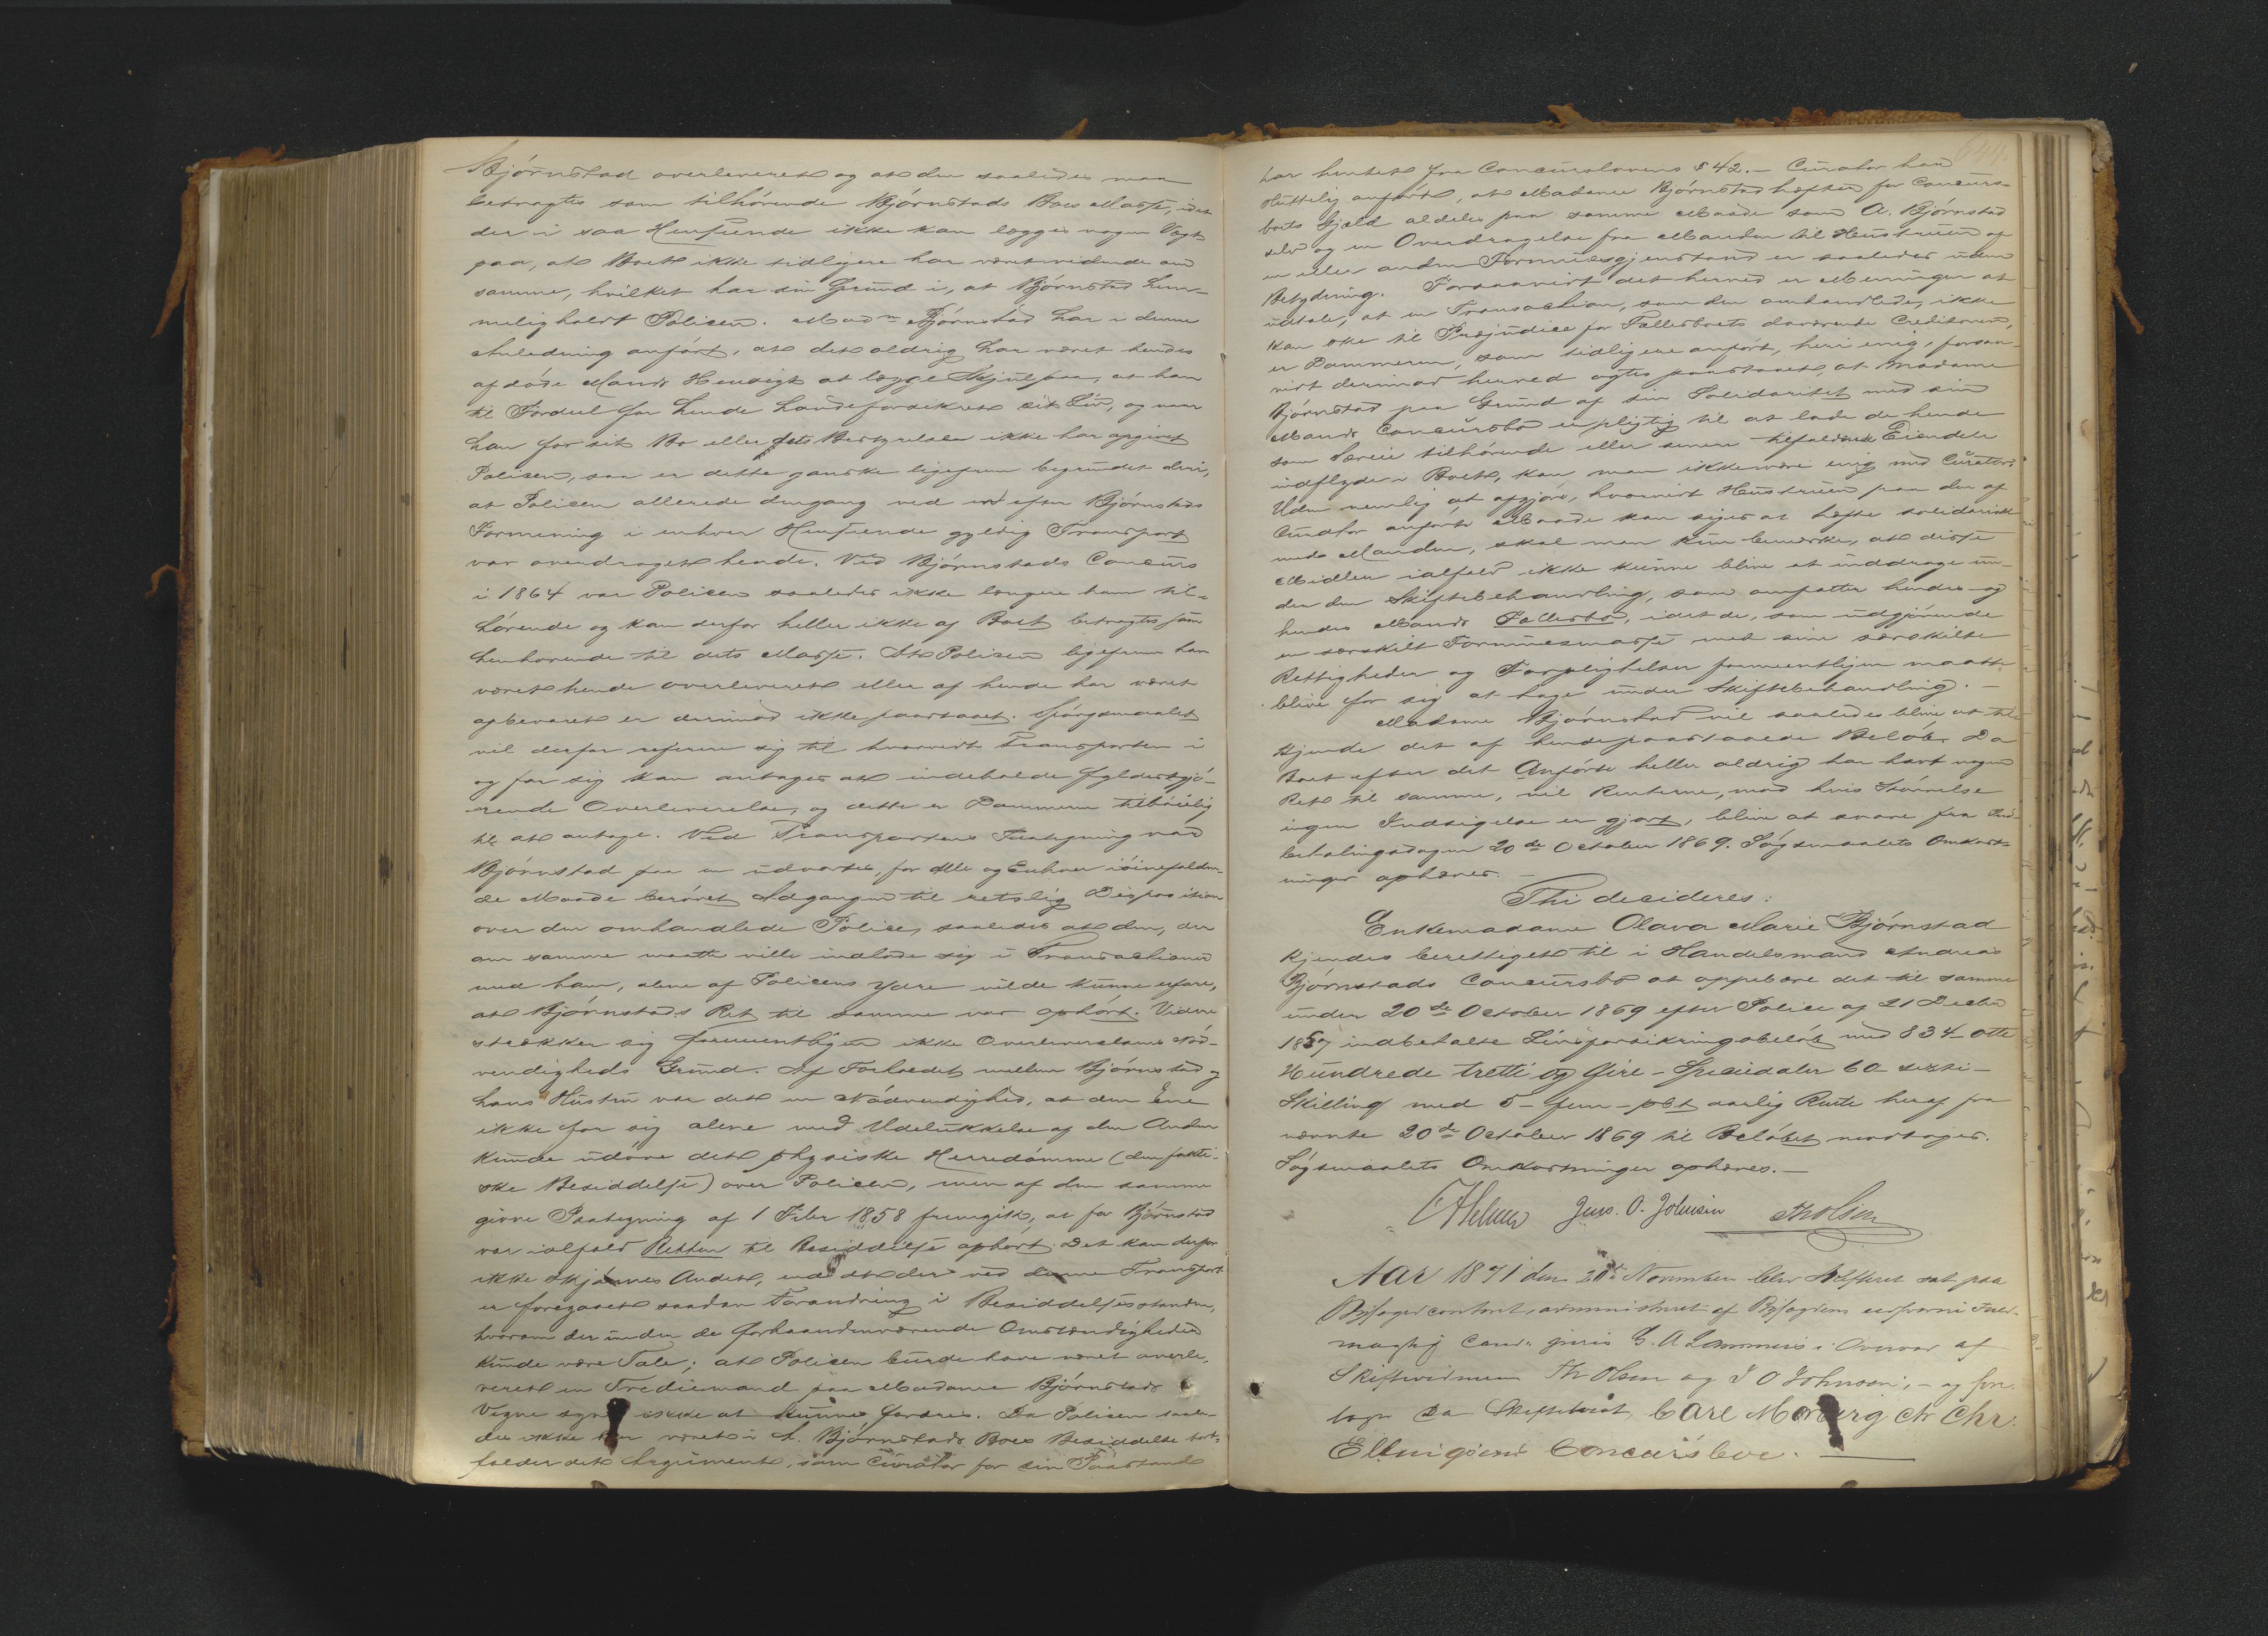 Bjørnstad overleveret og at den saaledes maa
betragtes som tilhørende Bjørnstads Boes Masse, idet
der i saa Henseende ikke kan lægges nogen Vægt
paa, at Boet ikke tidligere har været vidende om
samme, hvilket har sin Grund i, at Bjørnstad hem-
meligholdt Policen. Madm Bjørnstad har i denne
Anledning anført, at det aldrig har været hendes
afdøde Mands Hensigt at lægge Skjul paa, at han
til Fordeel for hende havde forsikret sit Liv, og naar
han for sit Bo eller dets Bestyrelse ikke har opgivet
Policen, saa er dette ganske ligefrem begrundet deri,
at Policen allerede dengang ved en efter Bjørnstads
Formening i enhver Henseende gyldig Transport
var overdraget hende. Ved Bjørnstads Concurs
i 1864 var Policen saaledes ikke længere ham til-
hørende og kan derfor heller ikke af Boet betragtes som
henhørende til dets Masse. At Policen ligefrem har
været hende overleveret eller af hende har været
opbevaret er derimod ikke paastaaet. Spørgsmaalet
vil derfor referere sig til hvorvidt Transporten i
og for sig kan antages at indeholde fyldestgjø-
rende Overleverelse, og dette er Dommeren tilbøielig
til at antage. Ved Transportens Paategning var
Bjørnstad paa en udvortes, for Alle og Enhver iøinefalden-
de Maade berøvet Adgangen til retslig Disposition
over den omhandlede Police, saaledes at den, der
om samme maatte ville indlade sig i Transactioner
med ham, alene af Policens Ydre vilde kunne erfare,
at Bjørnstads Ret til samme var ophørt. Videre
strækker sig formeentligen ikke Overleverelsens Nød-
vendigheds Grund. Af Forholdet mellem Bjørnstad og
hans Hustru var det en Nødvendighed, at den Ene
ikke for sig alene med Udelukkelse af den Anden
kunde udøve det physiske Herredømme (den fakti-
ske Besiddelse) over Policen, men af den samme
givne Paategning af 1 Febr 1858 fremgik, at for Bjørnstad
var ialfald Retten til Besiddelse ophørt. Det kan derfor
ikke skjønnes Andet, end at der ved denne Transport
er foregaaet saadan Forandring i Besiddelsesstanden,
hvorom der under de forhaandenværende Omstændigheder
kunde være Tale; at Policen burde have været overle-
veret en Trediemand paa Madame Bjørnstads
Vegne synes ikke at kunne fordres. Da Policen saale-
des ikke har været i A. Bjørnstads Boes Besiddelse bort-
falder det Argument, som Curator for sin Paastand
har hentet fra Concurslovens § 42. – Curator har
sluttelig anført, at Madame Bjørnstad hæfter for Concurs-
boets Gjæld aldeles paa samme Maade som A. Bjørnstad
selv og en Overdragelse fra Manden til Hustruen af
en eller anden Formuesgjenstand er saaledes uden
Betydning. Forsaavidt det herved er Meningen at
udtale, at en Transaction, som den omhandlede, ikke
kan ske til Præjudice for Fællesboets daværende Creditorer,
er Dommeren, som tidligere anført, heri enig, forsaa-
vidt derimod herved agtes paastaaet, at Madame
Bjørnstad paa Grund af sin Solidaritet med sin
Mands Concursbo er pligtig til at lade de hende
som Særeie tilhørende eller senere tilfaldne Eiendele
indflyde i Boet, kan man ikke være enig med Curator.
Uden nemlig at afgjøre, hvorvidt Hustruen paa den af
Curator anførte Maade kan siges at hæfte solidarisk
med Manden, skal man kun bemærke, at disse
Midler ialfald ikke kunne blive at inddrage un-
der den Skiftebehandling, som omfatter hendes og
hendes Mands Fællesbo, idet de, som udgjørende
en særskilt Formuesmasse med sine særskilte
Rettigheder og Forpligtelser formeentligen maatte
blive for sig at tage under Skiftebehandling. –
Madame Bjørnstad vil saaledes blive at til-
kjende det af hende paastaaede Beløb. Da
Boet efter det Anførte heller aldrig har havt nogen
Ret til samme, vil Renterne, mod hvis Størrelse
ingen Indsigelse er gjort, blive at svare fra Ind-
betalingsdagen 20de October 1869. Søgsmaalets Omkost-
ninger ophæves. –
Thi decideres:
Enkemadame Olava Marie Bjørnstad
kjendes berettiget til i Handelsmand Andreas
Bjørnstads Concursbo at oppebære det til samme
under 20de October 1869 efter Police af 21 Decbr
1857 indbetalte Livsforsikringsbeløb med 834 – otte
Hundrede tretti og fire – Speciedaler 60 – sexti –
Skilling med 5 – fem – pCt aarlig Rente heraf fra
nævnte 20de October 1869 til Beløbet modtages.
Søgsmaalets Omkostninger ophæves. –
Jens. O. Johnsen Th Olsen
Aar 1871 den November blev Skifteret sat paa
Byfogedcontoret, administreret af Byfogdens Fuld-
mægtig Cand. juris i Overvær af
Skiftevidnerne Th Olsen og J O Johnsen, – og fore-
toges da Carl Chr.
Concursboe. –